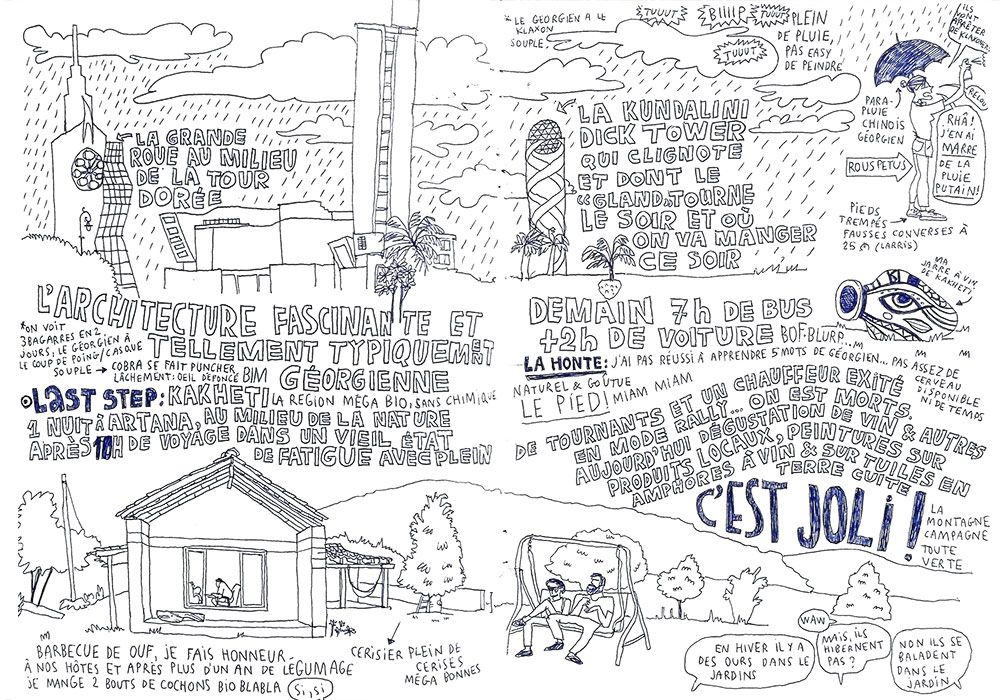 LA GRANDE
ROUE AU MILIEU
DE LA TOUR
DORÉE
L'ARCHITECTURE FASCINANTE ET
TELLEMENT TYPIQUEMENT
GÉORGIENNE
*ON VOIT
3 BAGARRES EN 2
JOURS, LE GÉORGIEN À
LE COUP DE POING/CASQUE
SOUPLE → COBRA SE FAIT PUNCHER
LÂCHEMENT: OEIL DÉFONCÉ BIM
LAST STEP: KAKHETI LA REGION MÉGA BIO, SANS CHIMIQUE
1 NUIT À ARTANA, AU MILIEU DE LA NATURE
APRÈS 10H DE VOYAGE DANS UN VIEIL ÉTAT
DE FATIGUE AVEC PLEIN
BARBECUE DE OUF, JE FAIS HONNEUR
À NOS HÔTES ET APRÈS PLUS D'UN AN DE LEGUMAGE
JE MANGE 2 BOUTS DE COCHONS BIO BLABLA
SI, SI
CERISIER PLEIN DE
CERISES
MÉGA BONNES
*LE GÉORGIEN A LE
KLAXON
SOUPLE!
TUUUT
BIIIIP
TUUUT
TUUUT
PLEIN
DE PLUIE,
PAS EASY
DE PEINDRE
ILS
VONT
ARRÊTER
DE KLAXONER
RELOU
PARA-
PLUIE
CHINOIS
GÉORGIEN
RHÂ!
J'EN AI
MARRE
DE LA
PLUIE
PUTAIN!
ROUSPETUS
PIEDS
TREMPÉS
FAUSSES CONVERSES À
25 (LARRIS)
LA KUNDALINI
DICK TOWER
QUI CLIGNOTE
ET DONT LE
"GLAND" TOURNE
LE SOIR ET OÙ
ON VA MANGER
CE SOIR
MA
JARRE À VIN
DE KAKHETI
DEMAIN 7h DE BUS
+2h DE VOITURE BOF-BLURP...
LA HONTE: J'AI PAS RÉUSSI A APPRENDRE 5 MOTS DE GÉORGIEN... PAS ASSEZ DE
CERVEAU
DISPONIBLE
NI DE TEMPS
NATUREL & GOÛTUE
LE PIED! MIAM MIAM
DE TOURNANTS ET UN CHAUFFEUR EXITÉ
EN MODE RALLY... ON EST MORTS.
AUJOURD'HUI DÉGUSTATION DE VIN & AUTRES
PRODUITS LOCAUX, PEINTURES SUR
AMPHORES À VIN & SUR TUILES EN
TERRE CUITE
C'EST JOLI!
LA
MONTAGNE
CAMPAGNE
TOUTE
VERTE
EN HIVER IL Y A
DES OURS DANS LE
JARDINS
WAW
MAIS, ILS
HIBERNENT
PAS?
NON ILS SE
BALADENT
DANS LE
JARDIN